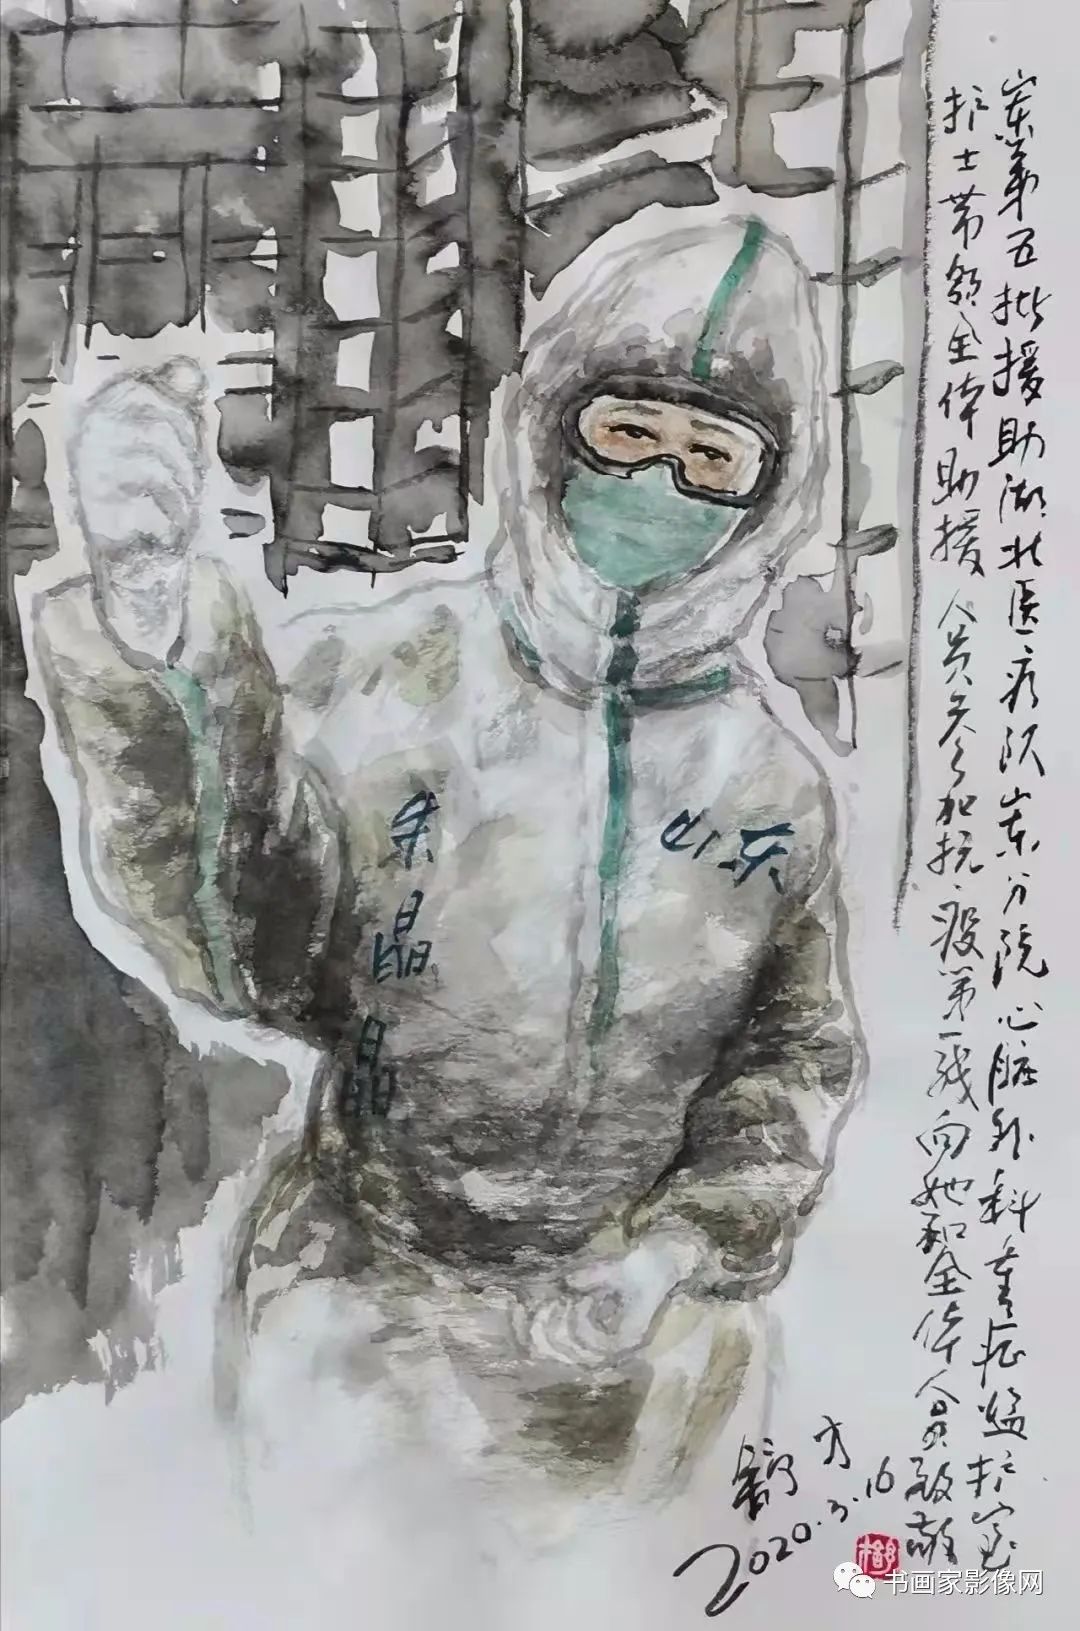 山东第五批援助湖北医疗队山东分院心脏外科重症监护室
护士带领全体助援人员参加抗疫第一线向她和全体人员致敬
朱晶晶
山东
舒方
2020.3.16
书画家影像网